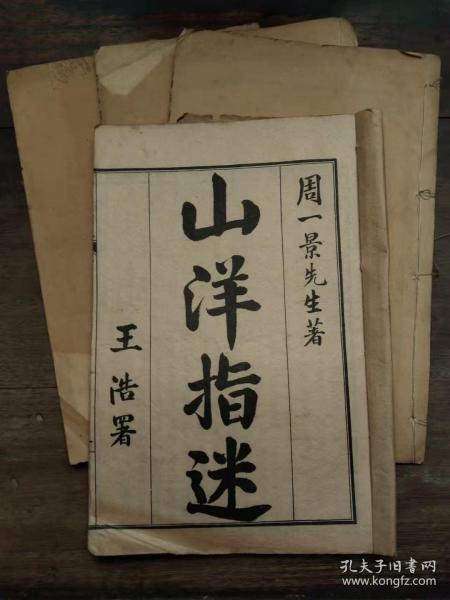 周一景先生著
山洋指迷
王浩署
孔夫子旧书网
www.kongfz.com